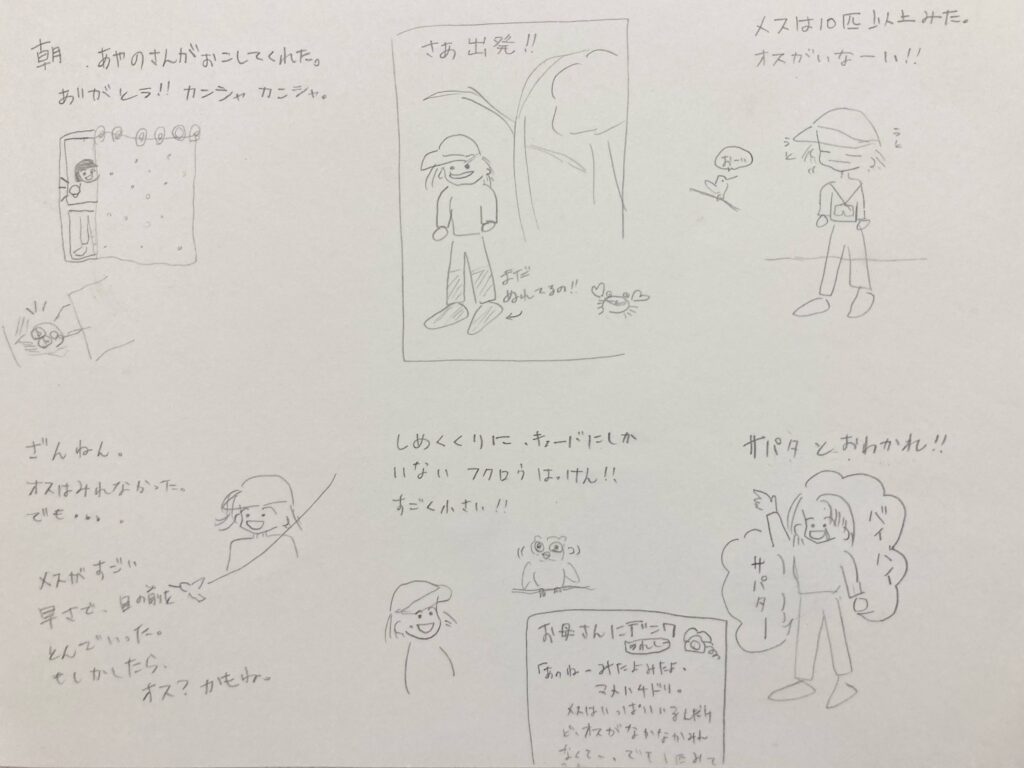 朝 . あやのさんがおこしてくれた。
ありがとう!! カンシャ カンシャ。
さあ 出発!!
まだ
ぬれてるの!!
メスは10匹以上みた。
オスがいなーい!!
おーい
うと
うと
ざんねん。
オスはみれなかった。
でも・・・。
メスがすごい
早さで、目の前を
とんでいった。
もしかしたら、
オス?かもね。
しめくくりに、キューバにしか
いない フクロウはっけん!!
すごく小さい!!
お母さんにデンワ
あのねーみたよみたよ、
マメハチドリ。
メスはいっぱいいるんだけ
ど、オスがなかなかみれ
なくて、、でも1匹みて
サパタとおわかれ!!
バイバイ
サパター